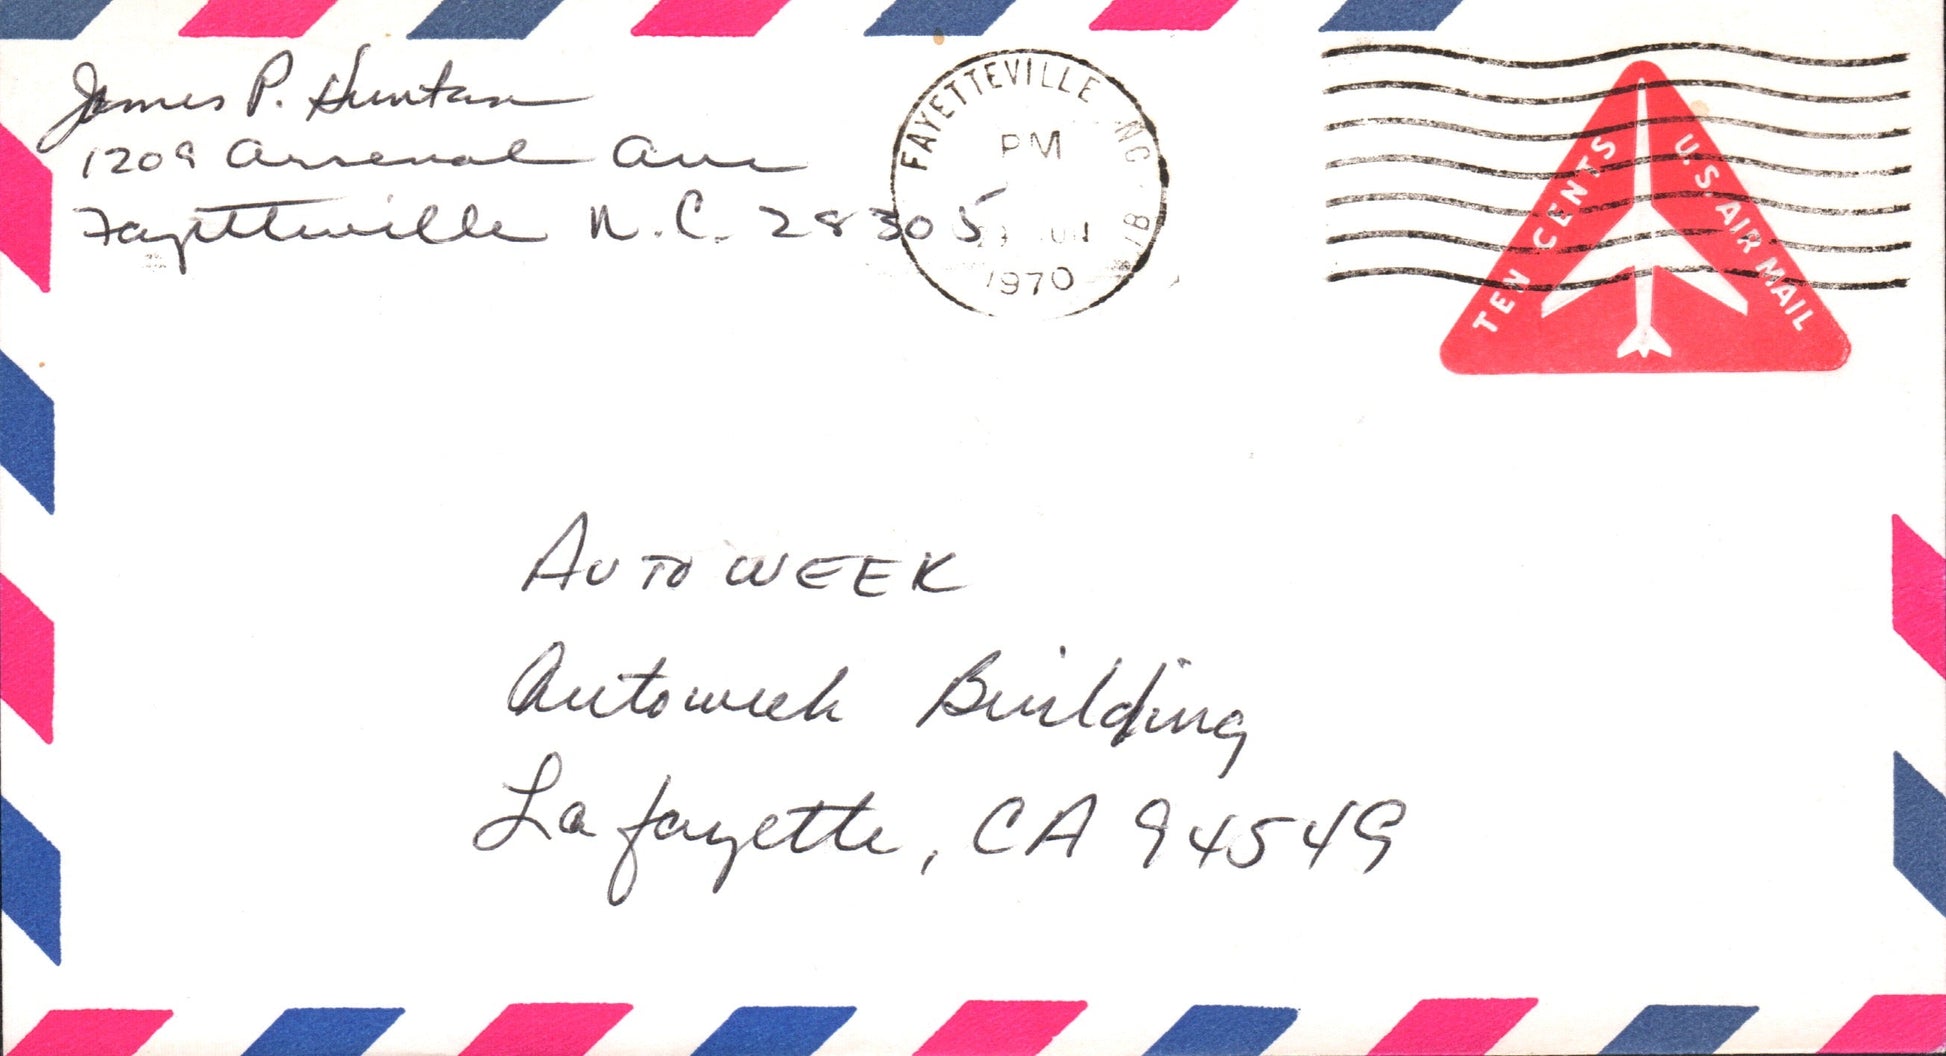 James P. Huntan
1209 Arsenal Ave
Fayetteville N.C. 28305
FAYETTEVILLE NC
PM
JUN
1970
TEN CENTS
U.S. AIR MAIL
AUTOWEEK
Autoweek Building
Lafayette, CA 94549